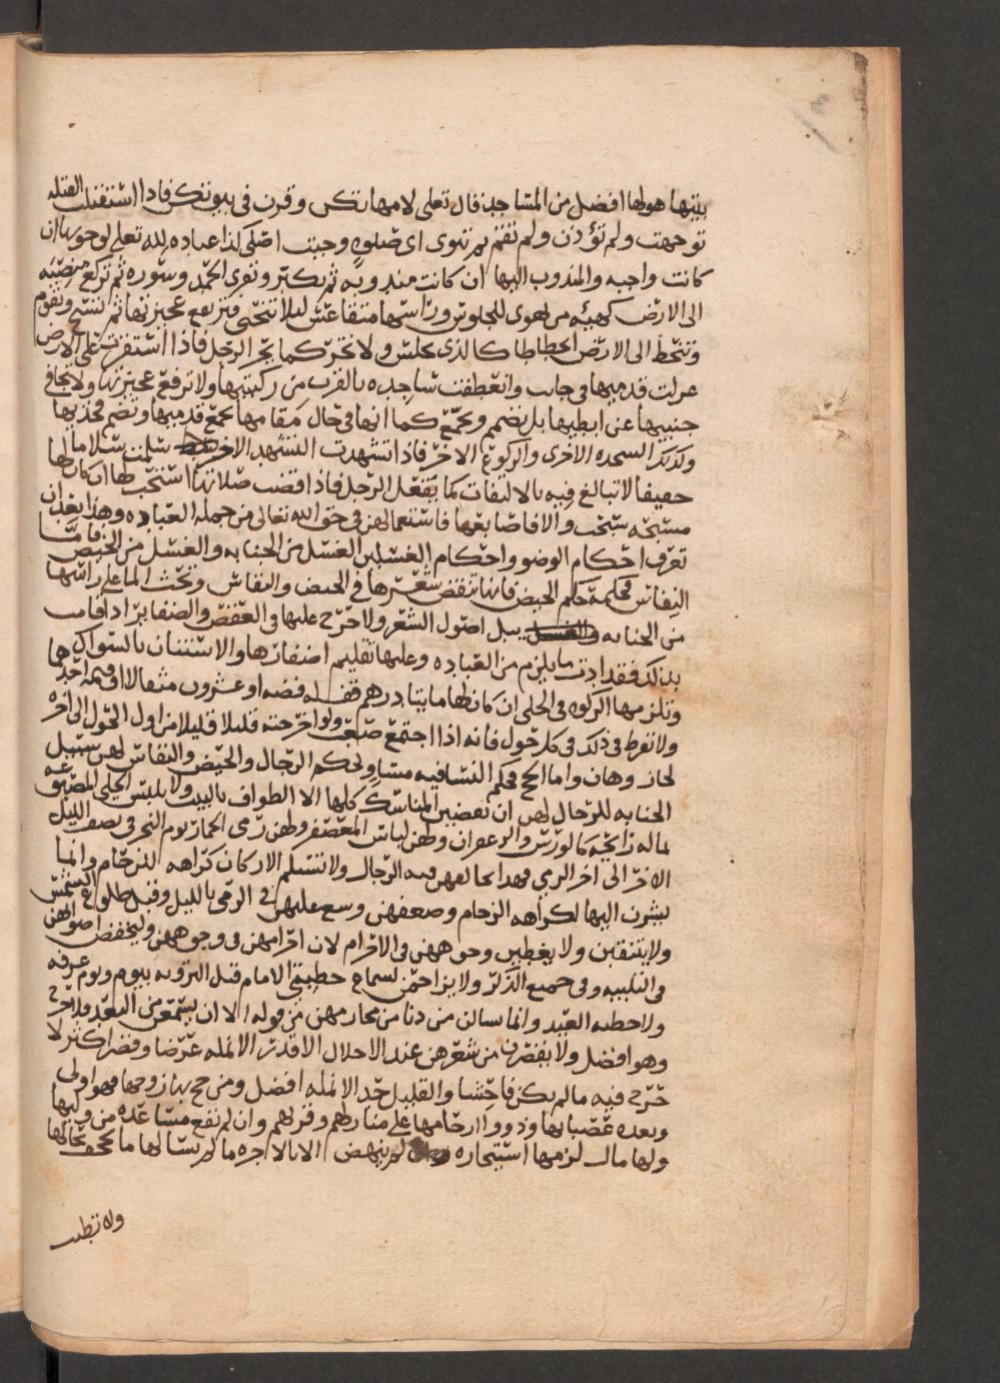 بيتها هو لها افضل من المساجد قال تعلى لامهاتكن وقرن في بيوتكن فاذا استقبلت القبله
توجهت ولم تؤذن ولم تقم ثم تنوى اى صلوه وجبت اصلى لذا عباده لله تعلى لوجوبها ان
كانت واجبه والمندوب اليها ان كانت مندوبه ثم تكبر وتقرى الحمد وسوره ثم تركع منصبه
الى الارض كهيئه من يهوى للجلوس وراسها متقاعس ليلا تنحنى فترتفع عجيزتها ثم تسبح وتقوم
وتنحط الى الارض انحطاطا كالذى يجلس ولا تخر كما يخر الرجل فاذا استقرت على الارض
عزلت قدميها في جانب وانعطفت ساجده بالقرب من ركبتيها ولا ترفع عجيزتها ولا تجافي
جنبيها عن ابطيها بل تضمم وتجمع كما انها في حال مقامها تجمع قدميها وتضم فخذيها
وكذلك السجده الاخرى والركوع الاخر فاذا تشهدت التشهد الاخر سلمت سلاما
خفيفا لا تبالغ فيه بالالتفات كما يفعل الرجل فاذا قضت صلاتها استحب لها ان كان لها
مسبحه سبحت والا فاصابعها فاستعمالهن في حق الله تعالى من جمله العباده وهذا بعد ان
تعرف احكام الوضو واحكام الغسلين الغسل من الجنابه والغسل من الحيض فاما
النفاس فحكمه حكم الحيض فانها تنقض شعرها في الحيض والنفاس وتحث الما على راسها
من الجنابه يبل اصول الشعر ولا حرج عليها في العقص والضفاير اذا قامت
بذلك فقد ادت ما يلزم من العباده وعليها تقليم اضفارها والاستنان بالسواك
وتلزمها الزكوه في الحلى ان كان لها مايتا درهم قفله فضه او عشرون مثقالا او قيمه احدهما
ولا تفرط في ذلك في كل حول فانه اذا اجتمع صعب ولو اخرجته قليلا قليلا من اول الحول الى اخره
لجاز وهان واما الحج فحكم النسا فيه مساو لحكم الرجال والحيض والنفاس لهن سبيل
الجنابه للرجال لهن ان تقضين المناسك كلها الا الطواف بالبيت ولا يلبسن الحلى المصبوغه
لما له رائحه كالورس والزعفران ولهن لباس المعصفر ولهن رمى الجمار يوم النحر في نصف الليل
الاخر الى اخر الرمي فهذا يخالفهن فيه الرجال ولا تستلم الاركان كراهه للزحام وانما
يشرن اليها لكراهه الزحام وضعفهن وسع عليهن في الرمى بالليل وقبل طلوع الشمس
ولا يتنقبن ولا يغطين وجوههن في الاحرام لان احرامهن في وجوههن وليخفضن اصواتهن
في التلبيه وفي جميع الذكر ولا يزاحمن لسماع خطبتي الامام قبل الترويه بيوم ويوم عرفه
ولا خطبه العيد وانما سالن من دنا من محارمهن من قوله الا ان يستمعن من البعد فلا حرج
وهو افضل ولا يقصرن من شعرهن عند الاحلال الا قدر الانمله عرضا وقصر اكثر لا
حرج فيه مالم يكن فاحشا والقليل حد الانمله افضل ومن حج بها زوجها فهو اولى
وبعده عصباتها وذووا ارحامها على منازلهم وقربهم وان لم تقع مساعده من وليها
ولها مال لزمها استيجاره لم ينهض الا بالاجره ما لم يسالها ما يجحف بحالها
ولا تطيب